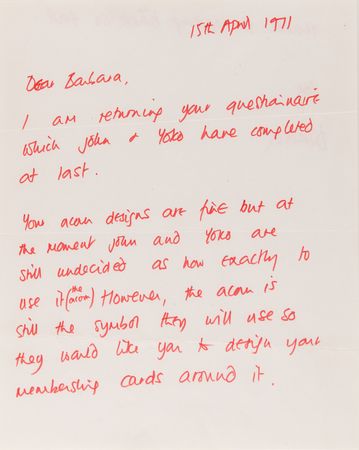 15th April 1971
Dear Barbara,
I am returning your questionaire
which John + Yoko have completed
at last.
Your acorn designs are fine but at
the moment John and Yoko are
still undecided as how exactly to
use it (the acorn) However, the acorn is
still the symbol they will use so
they would like you to design your
membership cards around it.